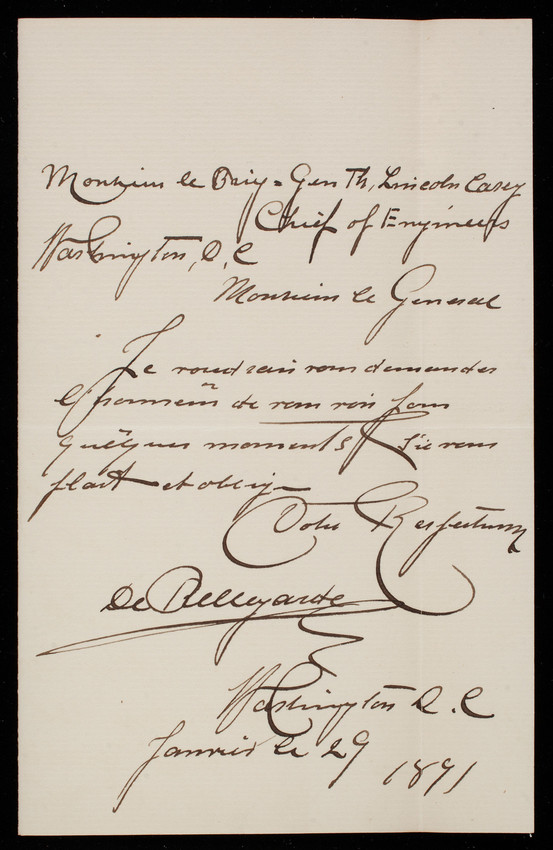 Monsieur le Brig = Gen Th, Lincoln Casey
Chief of Engineers
Washington, D, C
Monsieur le General
Je voudrais vous demander
l'honneur de vous voir pour
quelques moments s'il vous
plait et oblig
Votre Respectueux
De Bellegarde
Washington D. C
Janvier le 29
1891